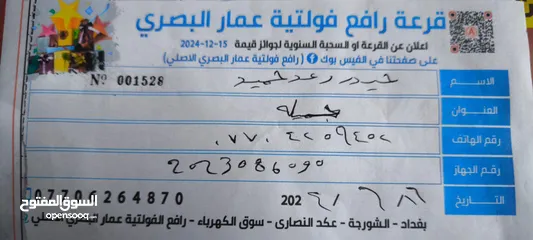 قرعة رافع فولتية عمار البصري
اعلان عن القرعة او السحبة السنوية لجوائز قيمة 15-12-2024
على صفحتنا في الفيس بوك ( رافع فولتية عمار البصري الاصلي )
الاسم حيدر رعد حميد Nº 001528
العنوان
رقم الهاتف
رقم الجهاز 2023086090
التاريخ 202
07706264870
بغداد - الشورجة - عكد النصارى - سوق الكهرباء - رافع الفولتية عمار البصري
السوق المفتوح
opensooq.com